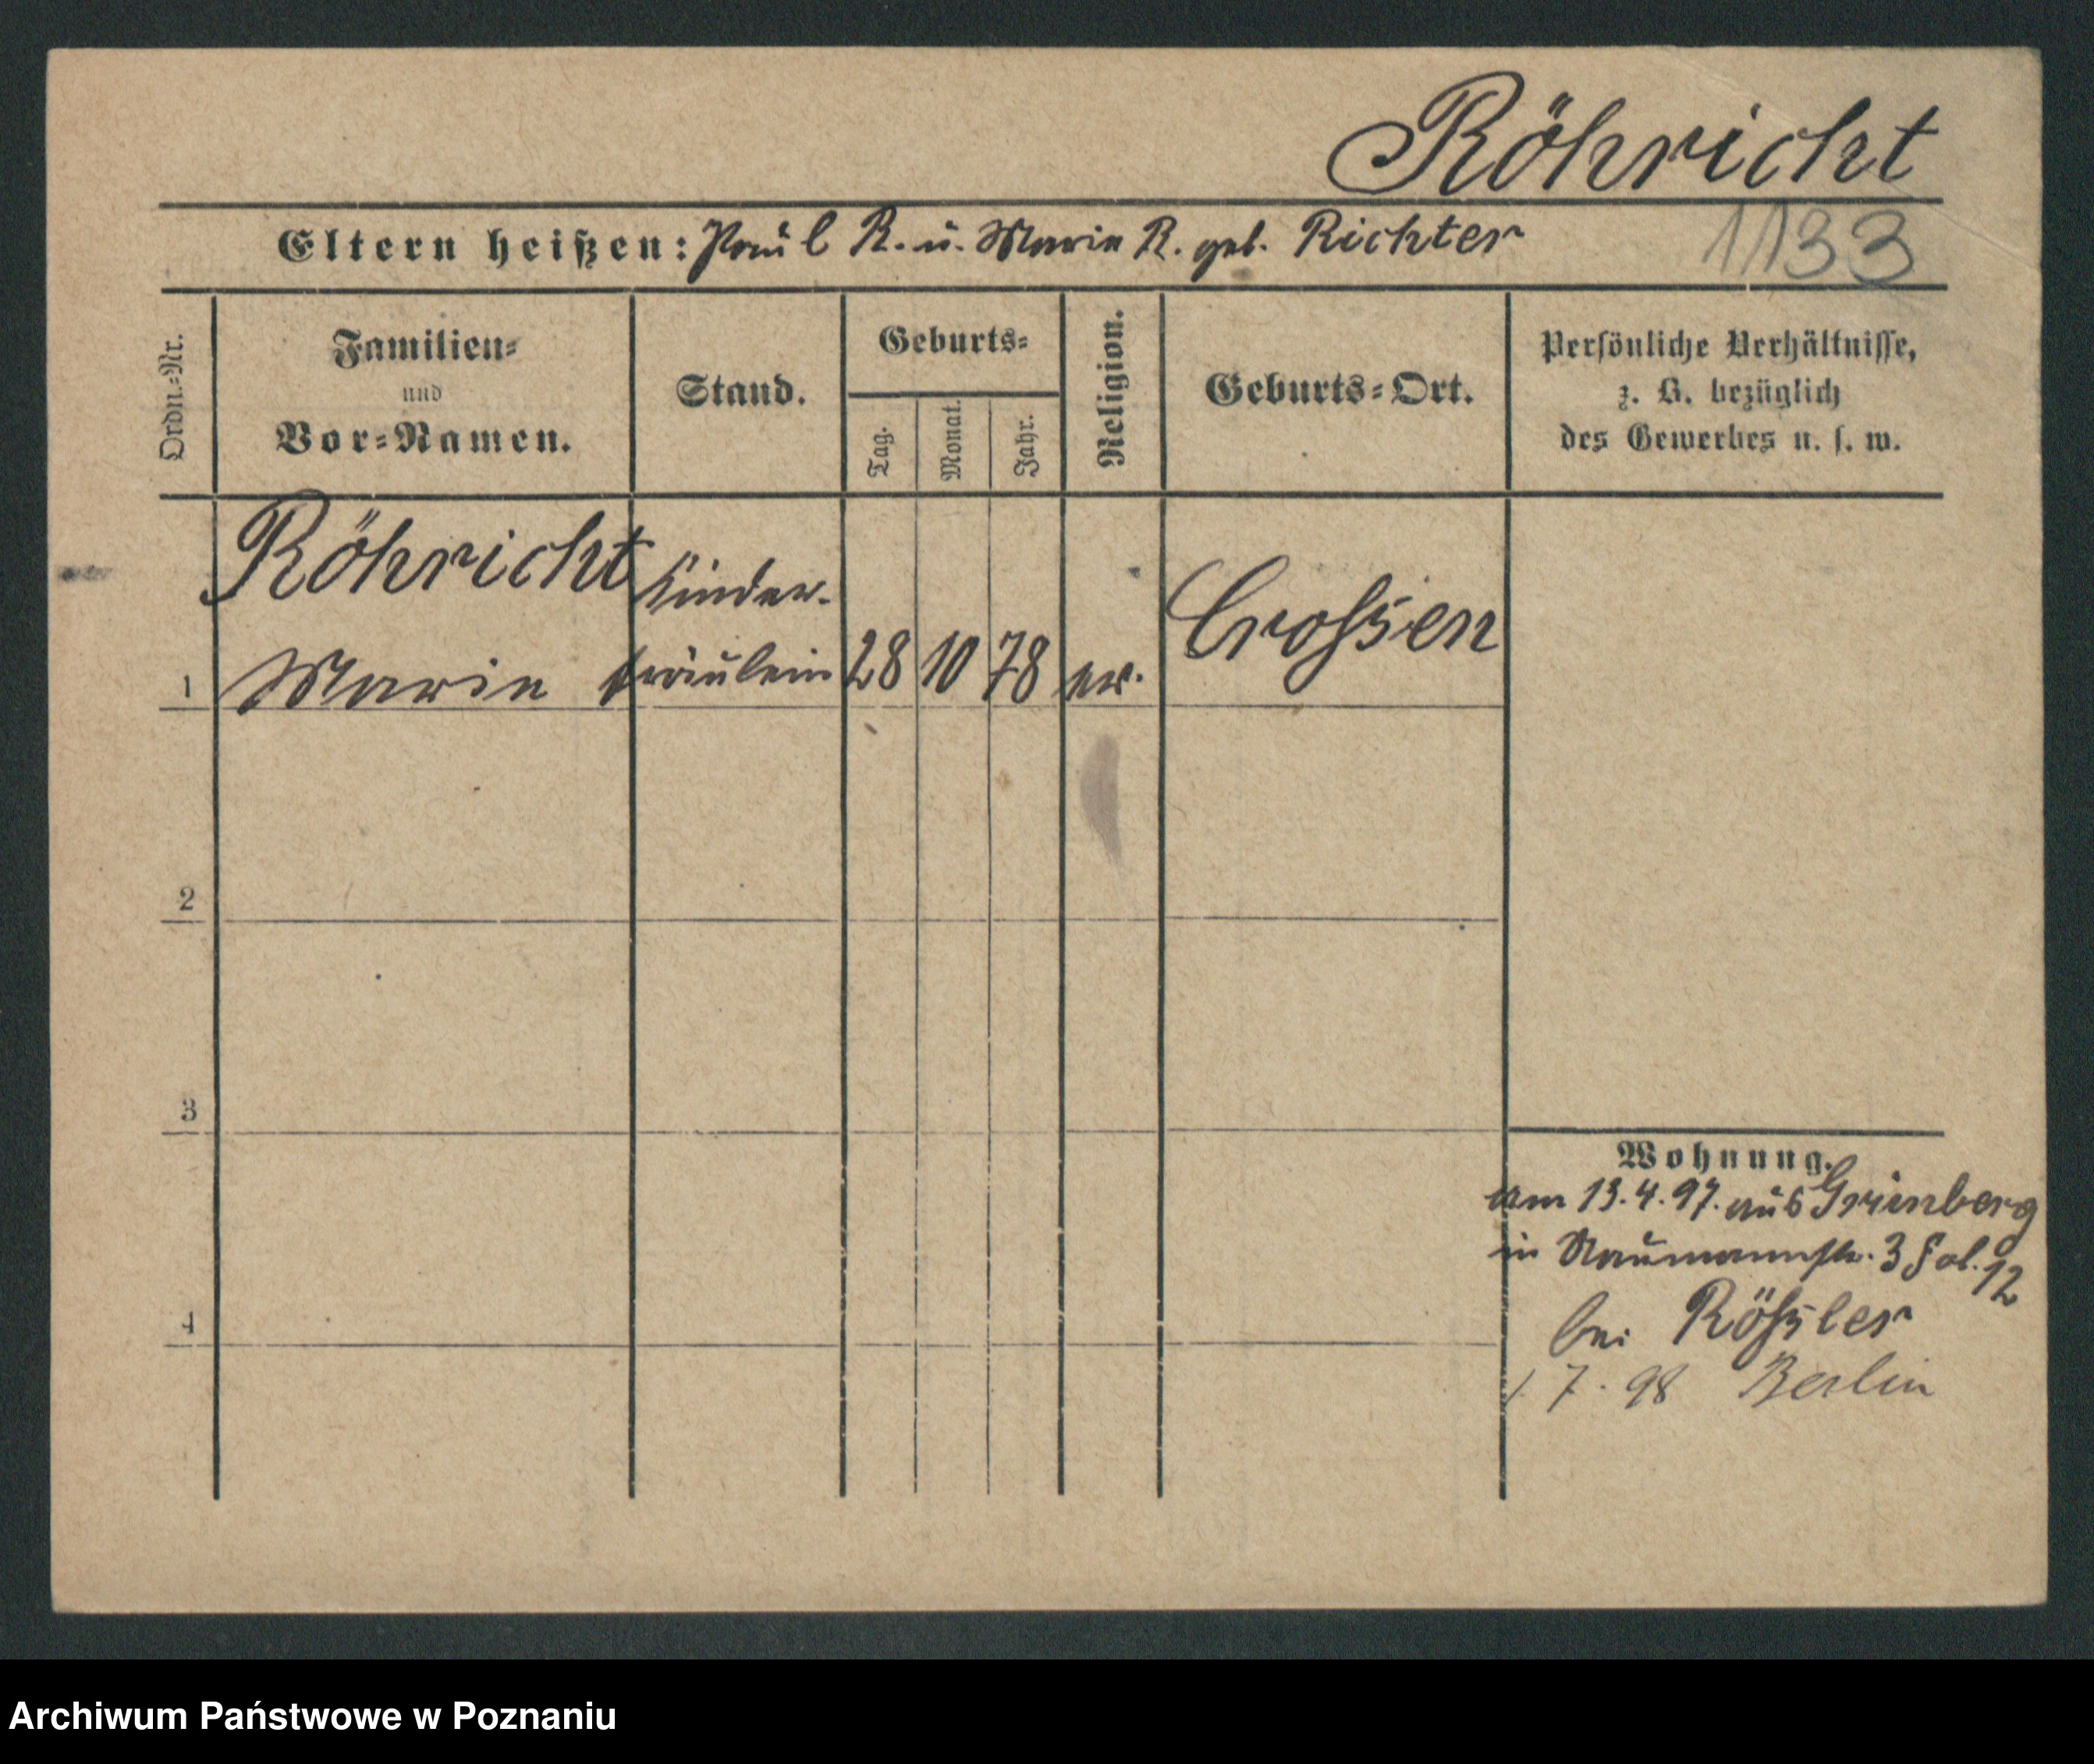 Röhricht
Eltern heißen: Paul R. u. Marie R. geb. Richter
1133
Ordn.-Nr.
Familien-
und
Vor-Namen.
Stand.
Geburts-
Tag.
Monat.
Jahr.
Religion.
Geburts-Ort.
Persönliche Verhältnisse,
z. B. bezüglich
des Gewerbes u. s. w.
Röhricht Kinder-
1 Marie fräulein 28 10 78 ev. Crossen
2
3
4
Wohnung.
am 13.4.97. aus Grünberg
in Naumannstr. 3 Fol. 12
bei Rößler
1. 7. 98 Berlin
Archiwum Państwowe w Poznaniu